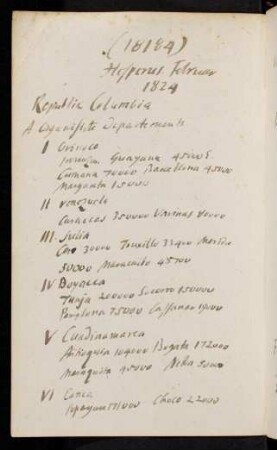 (18184)
Hesperus Februar
1824
Republik Columbia
A Organisirte Departements
I Orinoco
Guayana 45000
Cumana 70000 Barcellona 45000
Margarita 15000
II Venezuela
Caraccas 350000 Varinas 80000
III Sulia
Coro 30000 Truxillo 33400 Merida
50000 Maracaibo 45700
IV Boyacca
Tunja 200000 Socorro 150000
Pamplona 75000 Cassanare 19000
V Cundinamarca
Antioquia 104000 Bogota 172000
Mariquita 45000 Neiva 50000
VI Cauca
Popayan 171000 Choco 22000